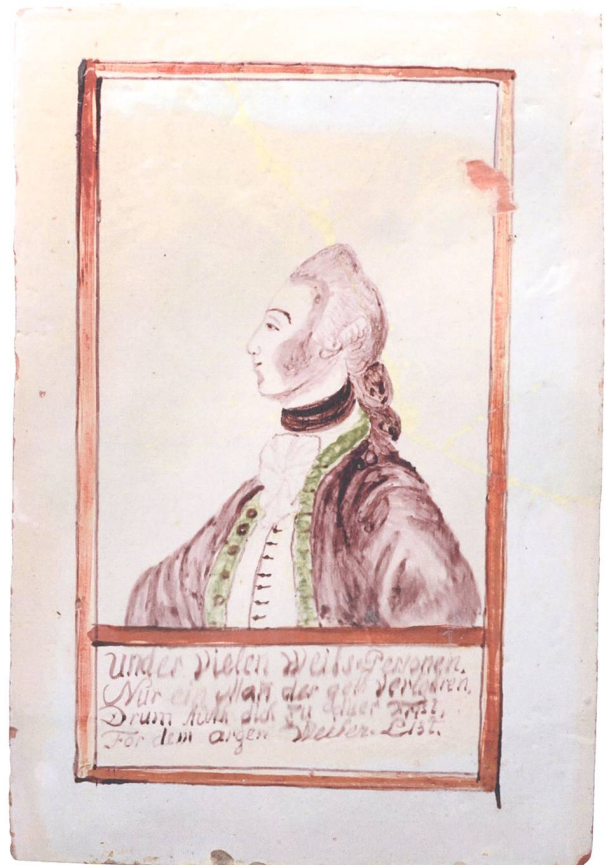 Under Vielen Weibs-Personen.
Nur ein Man der geth Verlohren,
Drum dich zu
For dem argen Weiber-List.